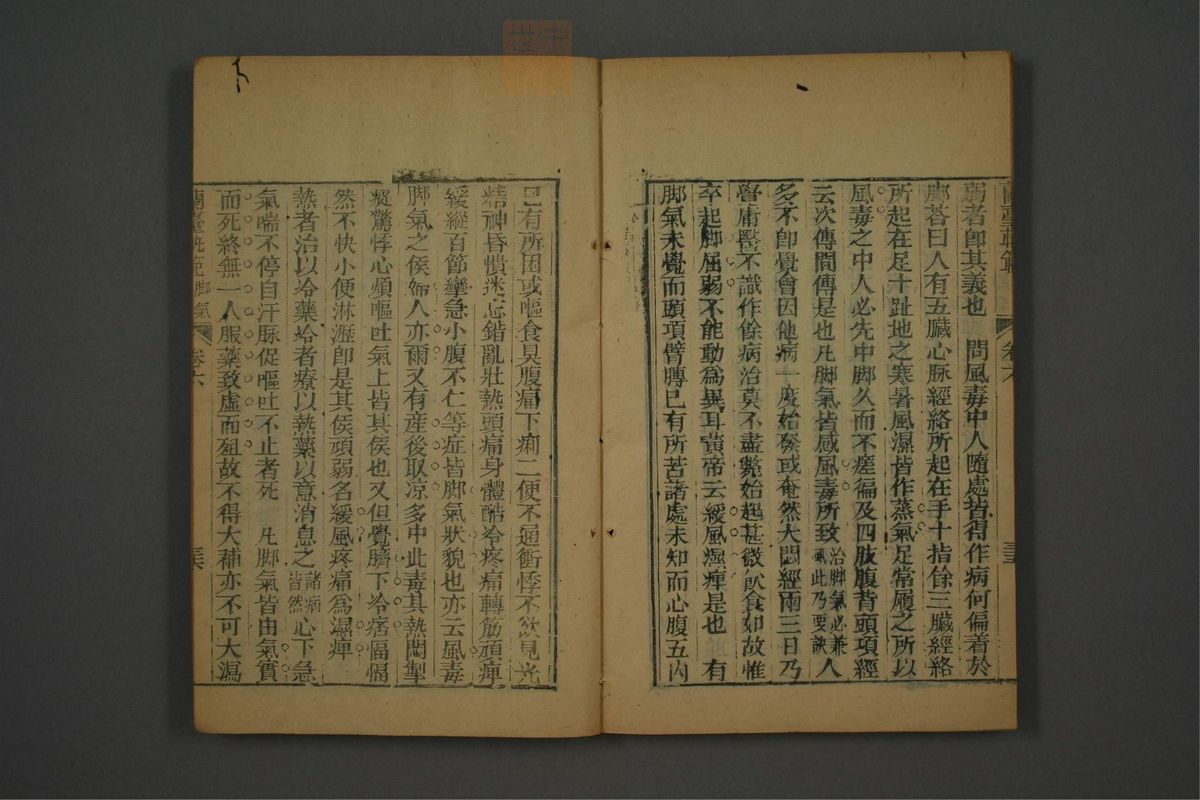 蘭臺軌範 卷六 三五
弱者卽其義也 問風毒中人隨處皆得作病何偏着於
脚答曰人有五臟心脉經絡所起在手十指餘三臟經絡
所起在足十趾地之寒暑風濕皆作蒸氣足常履之所以
風毒之中人必先中脚久而不瘥徧及四肢腹背頭項經
云次傳間傳是也凡脚氣皆感風毒所致治脚氣必兼風此乃要訣人
多不卽覺會因他病一度始發或奄然大悶經兩三日乃
覺庸醫不識作餘病治莫不盡斃始起甚微飲食如故惟
卒起脚屈弱不能動爲異耳黃帝云緩風濕痺是也 有
脚氣未覺而頭項臂膊已有所苦諸處未知而心腹五內
已有所困或嘔食臭腹痛下痢二便不通衝悸不欲見光
精神昏憒迷忘錯亂壯熱頭痛身體酷冷疼痛轉筋頑痺
緩縱百節攣急小腹不仁等症皆脚氣狀貌也亦云風毒
脚氣之侯婦人亦爾又有產後取凉多中此毒其熱悶掣
瘲驚悸心煩嘔吐氣上皆其侯也又但覺臍下冷痞愊愊
然不快小便淋瀝卽是其侯頑弱名緩風疼痛爲濕痺
熱者治以冷藥冷者療以熱藥以意消息之諸病皆然心下急
氣喘不停自汗脉促嘔吐不止者死 凡脚氣皆由氣實
而死終無一人服藥致虛而殂故不得大補亦不可大瀉
蘭臺軌範脚氣 卷六 三六